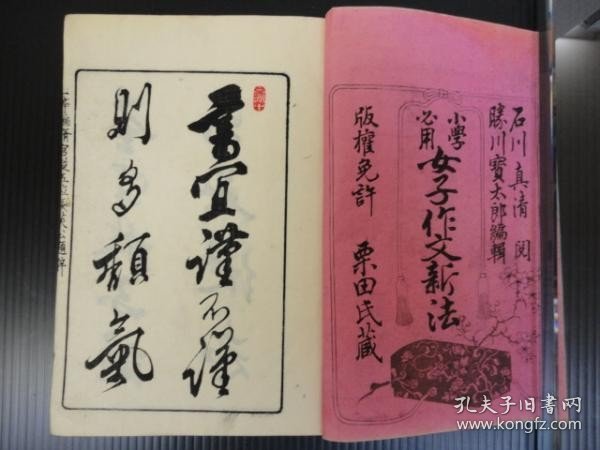 石川真清 閲
勝川寶太郎編輯
小學
必用
女子作文新法
版權免許 栗田氏藏
書宜謹不謹
則多頽氣
孔夫子旧书网
www.kongfz.com